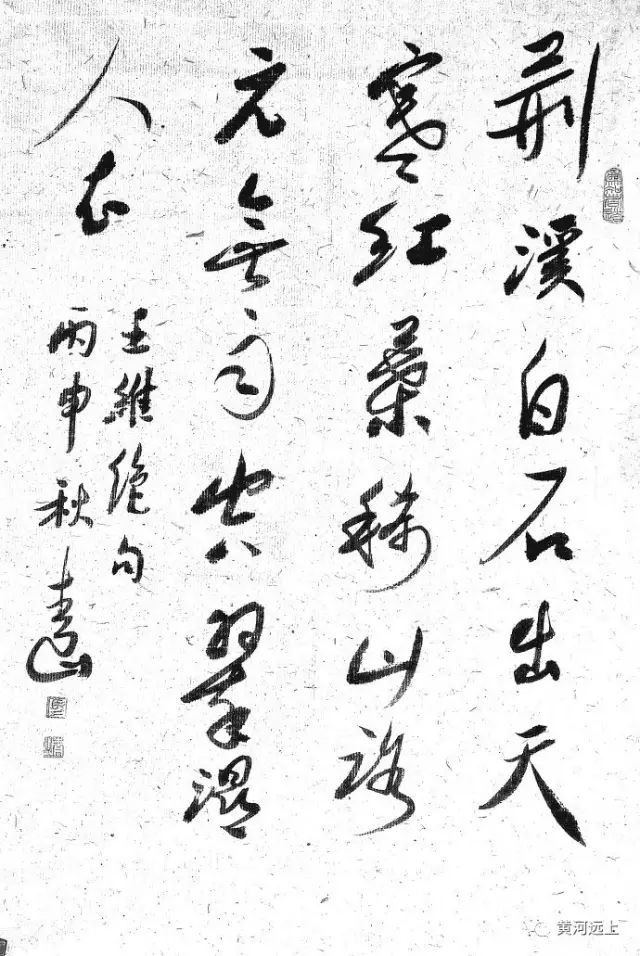 荆溪白石出天
寒红葉稀山路
元無雨空翠湿
人衣
王維絶句
丙申秋
黄河远上